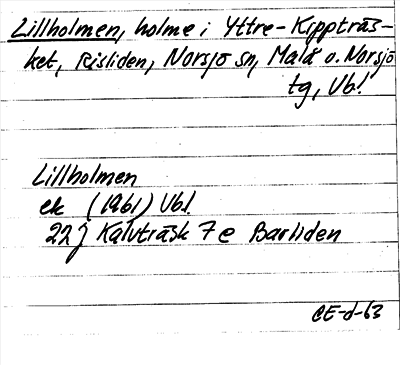 Lillholmen, holme i Yttre-Kippträs-
ket, Risliden, Norsjö sn, Malå o. Norsjö
tg, Vb!
Lillholmen
ek (1961) Vbl.
22 J Kalvträsk 7 e Barliden
CE-d-63